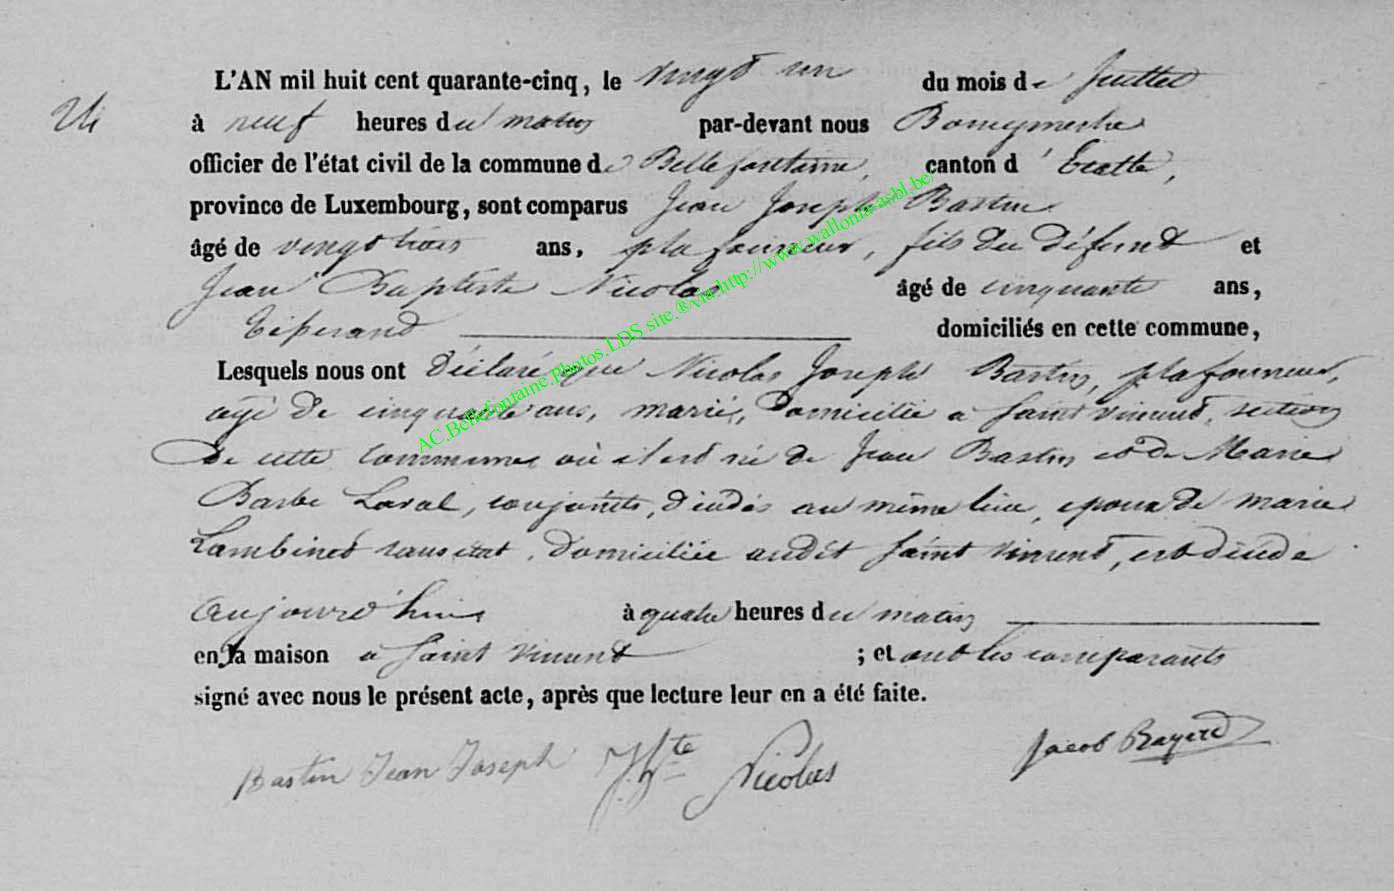 L'AN mil huit cent quarante-cinq, le vingt un du mois de Juillet
à neuf heures du matin par-devant nous Bourgmestre
officier de l'état civil de la commune de Bellefontaine, canton d'Etalle,
province de Luxembourg, sont comparus Jean Joseph Bastin
âgé de vingt trois ans, plafonneur, fils du défunt et
Jean Baptiste Nicolas âgé de cinquante ans,
Tisserand domiciliés en cette commune,
Lesquels nous ont déclaré que Nicolas Joseph Bastin, plafonneur,
agé de cinquante ans, marié, domicilié à Saint Vincent, section
de cette commune où il est né de Jean Bastin et de Marie
Barbe Laval, conjoints, décédés au même lieu, epoux de marie
Lambinet sans état, domiciliée audit Saint Vincent, est décédé
aujourd'hui à quatre heures du matin
en sa maison à Saint Vincent ; et ont les comparants
signé avec nous le présent acte, après que lecture leur en a été faite.
Bastin Jean Joseph J. Bte Nicolas Jacob
AC.Bellefontaine.Photos.LDS site.®via.http://www.wallonia-asbl.be/